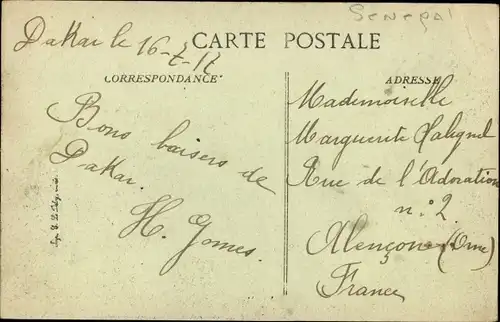 SENEGAL
Dakar le 16-2-17
CARTE POSTALE
CORRESPONDANCE
ADRESSE
Bons baisers de
Dakar.
H. Gomes.
Mademoiselle
Marguerite
Rue de l'Adoration
n° 2
Alençon (Orne)
France